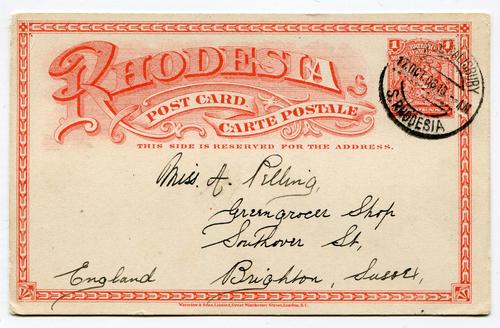 RHODESIA
POST CARD.
CARTE POSTALE
THIS SIDE IS RESERVED FOR THE ADDRESS.
1 1
SALISBURY
S. RHODESIA
Miss. A. Pilling,
Greengrocer Shop
Southover St,
England Brighton, Sussex,
Waterlow & Sons, Limited, Great Winchester Street, London, E.C.